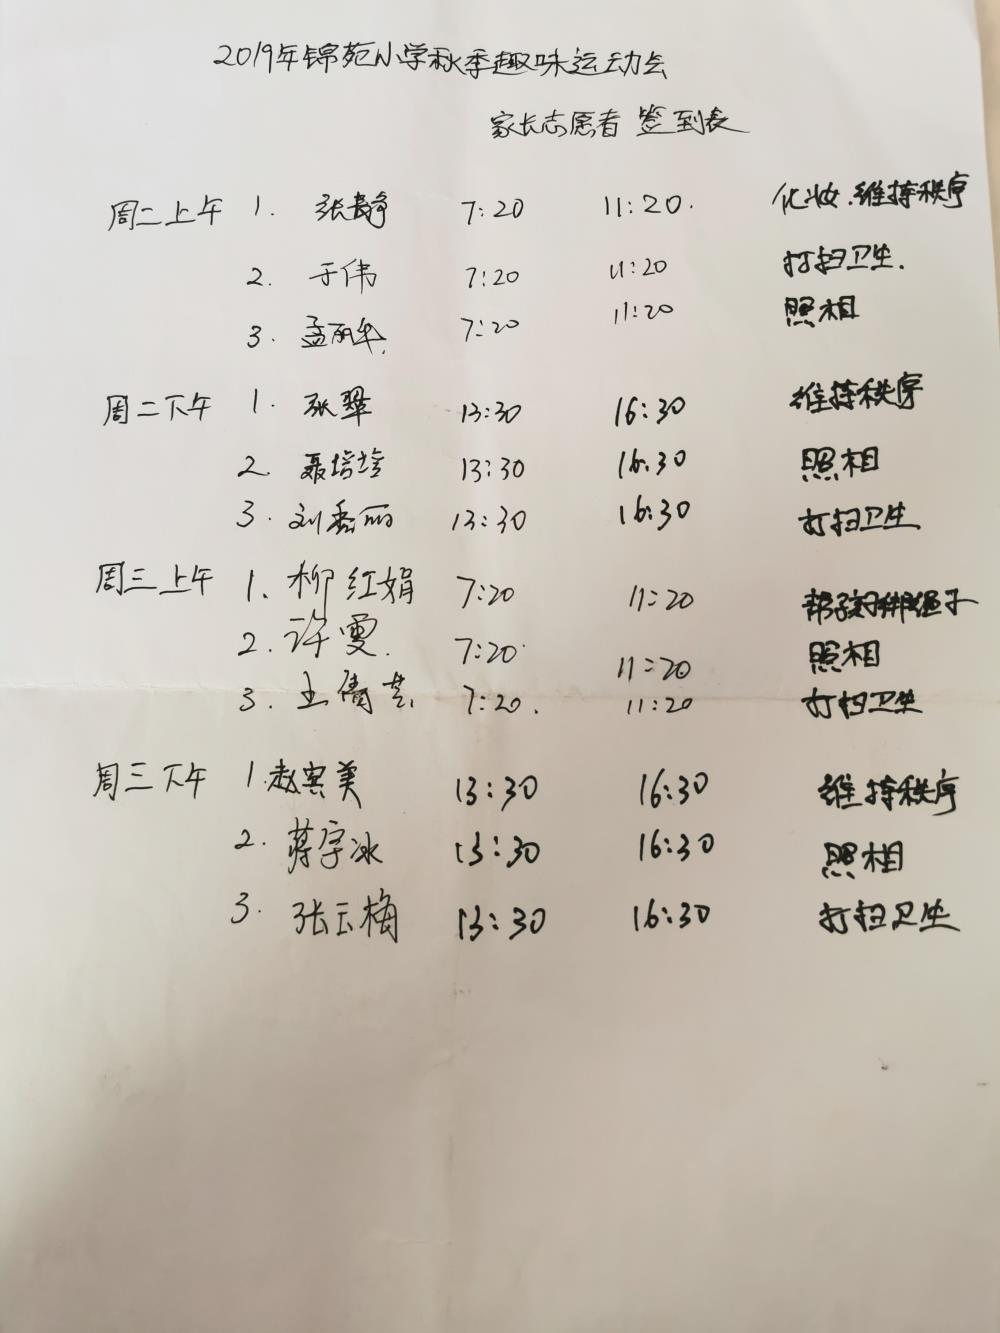 2019年锦苑小学秋季趣味运动会
家长志愿者 签到表
周二上午 1. 张静 7:20 11:20. 化妆.维持秩序
2. 于伟 7:20 11:20 打扫卫生.
3. 孟丽华. 7:20 11:20 照相
周二下午 1. 张翠 13:30 16:30 维持秩序
2. 聂培培 13:30 16:30 照相
3. 刘香丽 13:30 16:30 打扫卫生
周三上午 1. 柳红娟 7:20 11:20 帮孩子绑绳子
2. 许雯. 7:20. 11:20 照相
3. 王倩 7:20. 11:20 打扫卫生
周三下午 1.赵宾美 13:30 16:30 维持秩序
2. 蒋宇冰 13:30 16:30 照相
3. 张云梅 13:30 16:30 打扫卫生